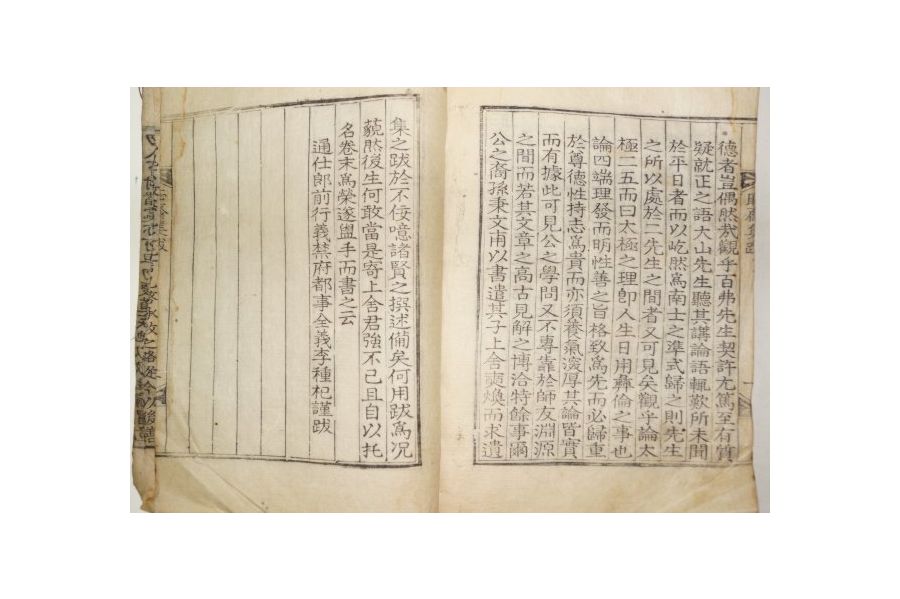 德者豈偶然哉觀乎百弗先生契許尤篤至有質
疑就正之語大山先生聽其講論語輒歎所未聞
於平日者而以屹然爲南士之準式歸之則先生
之所以處於二先生之間者又可見矣觀乎論太
極二五而曰太極之理卽人生日用彝倫之事也
論四端理發而明性善之旨格致爲先而必歸重
於尊德性持志爲貴而亦須養氣深厚其論皆實
而有據此可見公之學問又不專靠於師友淵源
之間而若其文章之高古見解之博洽特餘事爾
公之裔孫秉文甫以書遣其子上舍奭煥而求遺
集之跋於不佞噫諸賢之撰述備矣何用跋爲况
藐然後生何敢當是寄上舍君強不已且自以托
名卷末爲榮遂盥手而書之云
通仕郎前行義禁府都事全義李種杞謹跋